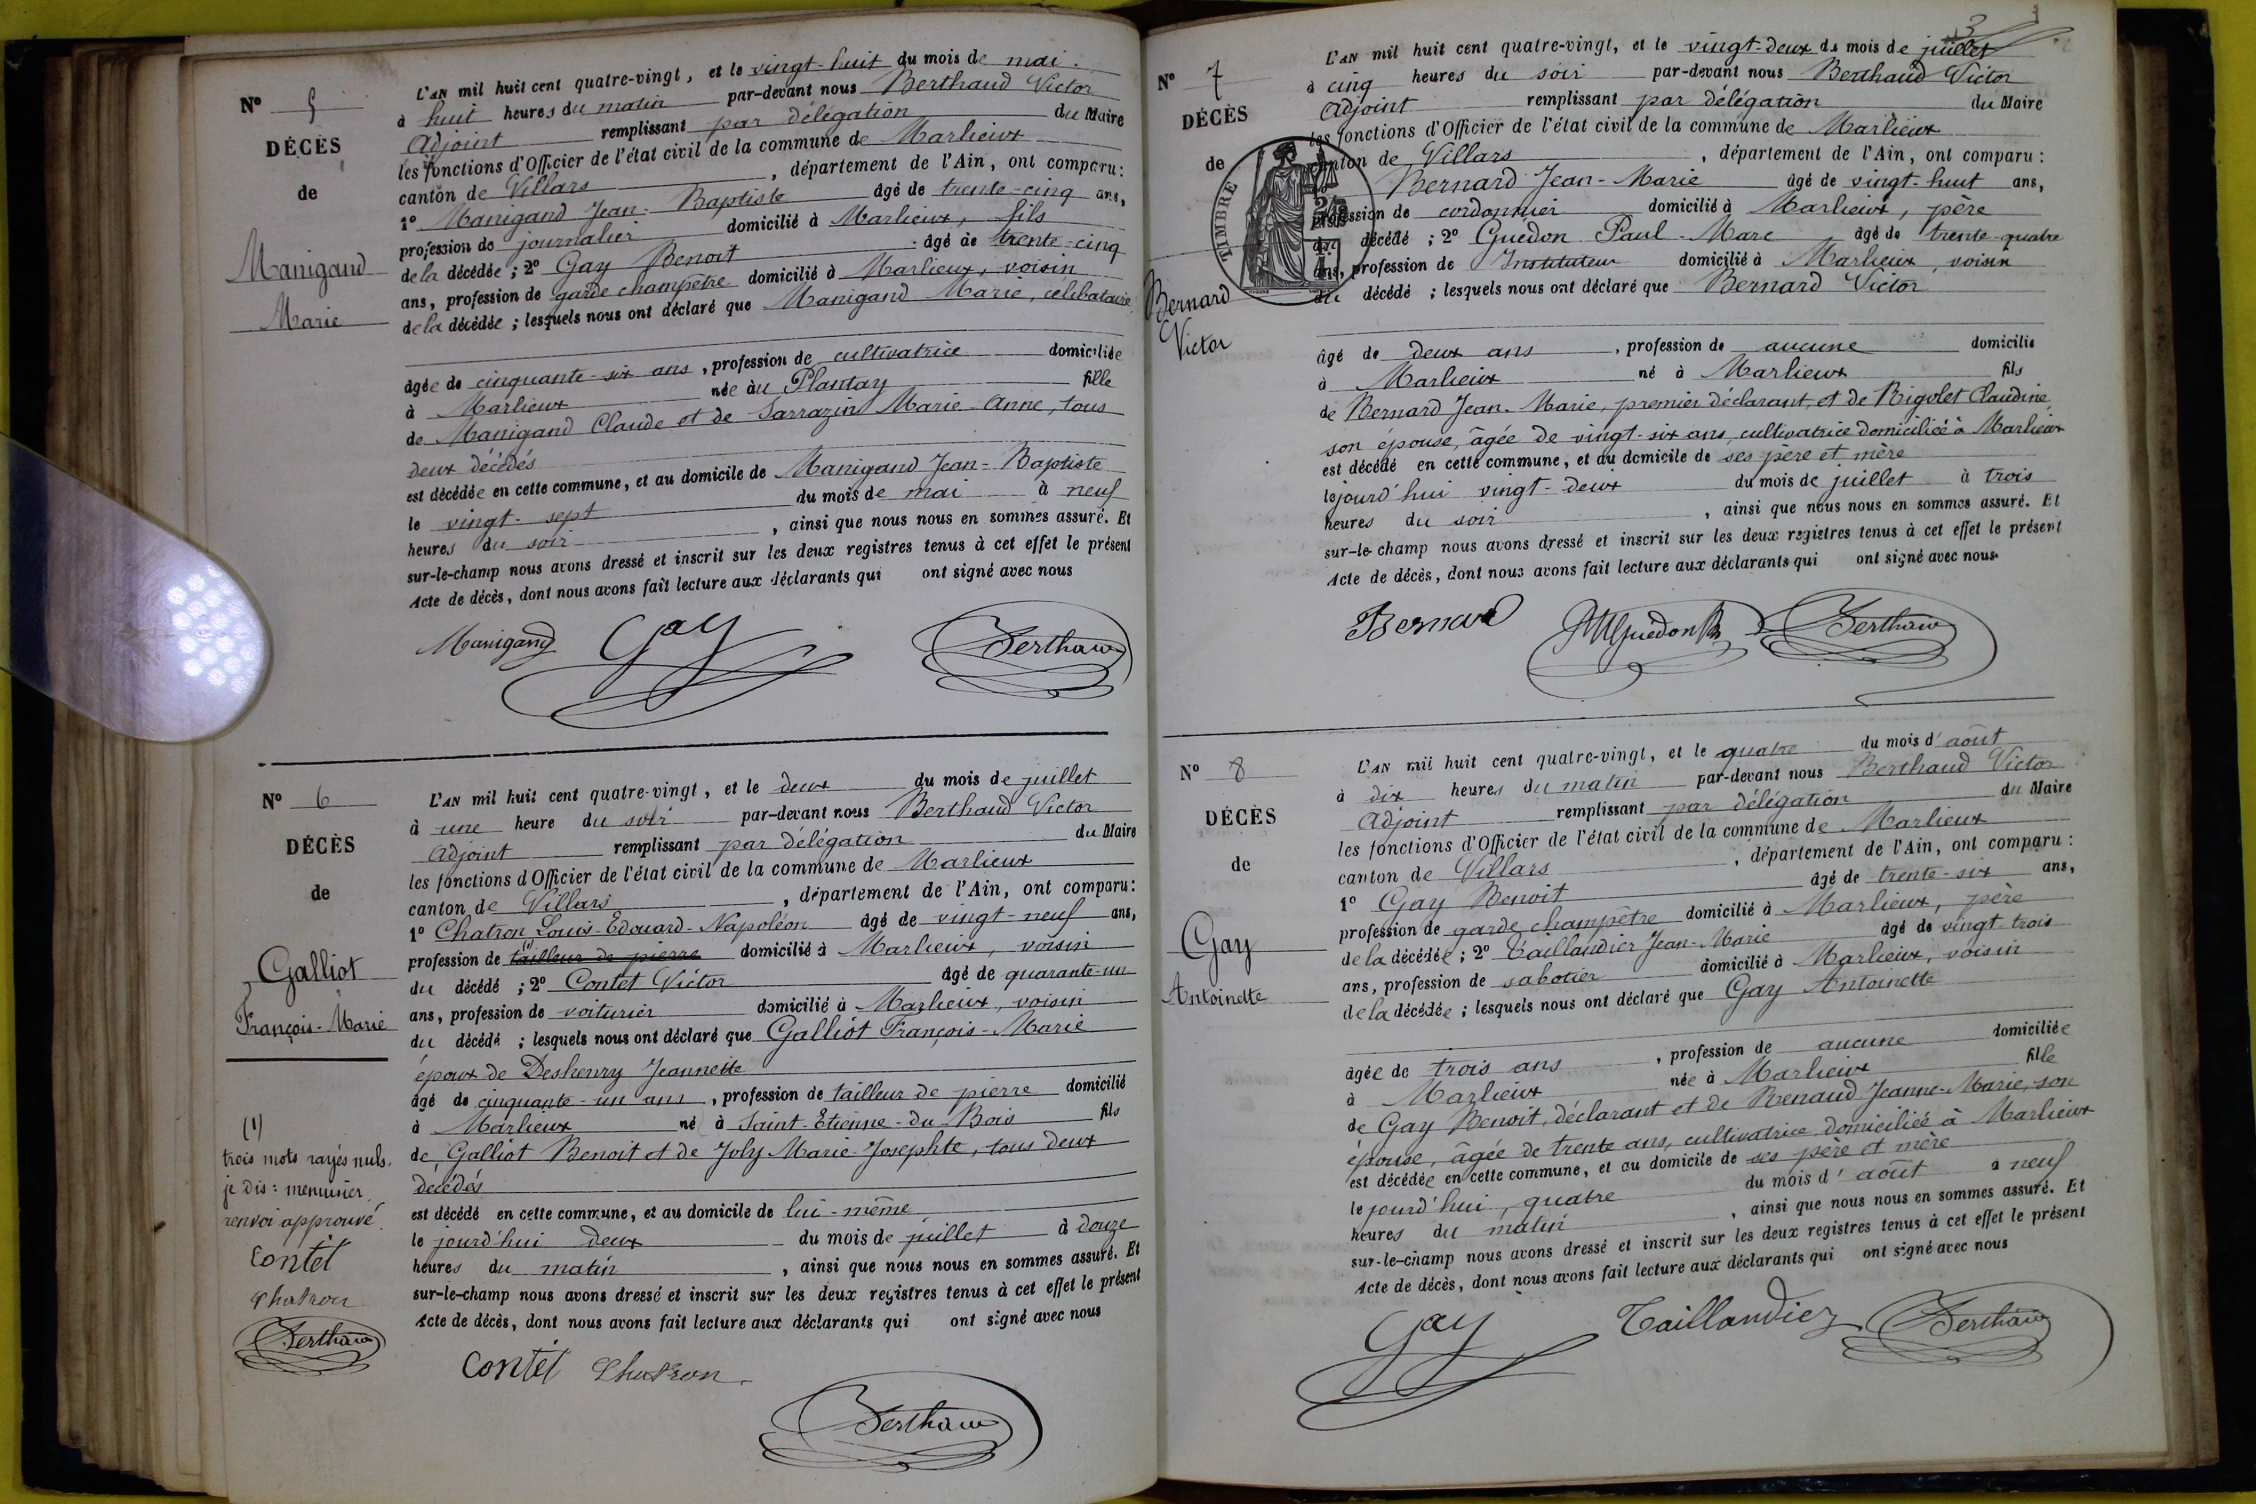 Nº 5
DÉCÈS
de
Manigand
Marie
L'AN mil huit cent quatre-vingt, et le vingt-huit du mois de mai.
à huit heures du matin par-devant nous Berthaud Victor
Adjoint remplissant par délégation du Maire
les fonctions d'Officier de l'état civil de la commune de Marlieux
canton de Villars, département de l'Ain, ont comparu:
1º Manigand Jean-Baptiste âgé de trente-cinq ans,
profession de journalier domicilié à Marlieux, fils
de la décédée; 2º Gay Benoit âgé de trente-cinq
ans, profession de garde champêtre domicilié à Marlieux, voisin
de la décédée; lesquels nous ont déclaré que Manigand Marie, célibataire
âgée de cinquante-six ans, profession de cultivatrice domiciliée
à Marlieux née au Plantay fille
de Manigand Claude et de Sarrazin Marie-Anne, tous
deux décédés
est décédée en cette commune, et au domicile de Manigand Jean-Baptiste
le vingt-sept du mois de mai à neuf
heures du soir, ainsi que nous nous en sommes assuré. Et
sur-le-champ nous avons dressé et inscrit sur les deux registres tenus à cet effet le présent
Acte de décès, dont nous avons fait lecture aux déclarants qui ont signé avec nous
Manigand Gay Berthaud
Nº 6
DÉCÈS
de
Galliot
François-Marie
(1)
trois mots rayés nuls.
je dis: menuisier.
renvoi approuvé.
Contet
Chatron
Berthaud
L'AN mil huit cent quatre-vingt, et le deux du mois de juillet
à une heure du soir par-devant nous Berthaud Victor
Adjoint remplissant par délégation du Maire
les fonctions d'Officier de l'état civil de la commune de Marlieux
canton de Villars, département de l'Ain, ont comparu:
1º Chatron Louis-Edouard-Napoléon âgé de vingt-neuf ans,
profession de (1) tailleur de pierre domicilié à Marlieux, voisin
du décédé; 2º Contet Victor âgé de quarante-un
ans, profession de voiturier domicilié à Marlieux, voisin
du décédé; lesquels nous ont déclaré que Galliot François-Marie
époux de Deshenry Jeannette
âgé de cinquante-un ans, profession de tailleur de pierre domicilié
à Marlieux né à Saint-Etienne-du-Bois fils
de Galliot Benoit et de Joly Marie-Josephte, tous deux
décédés
est décédé en cette commune, et au domicile de lui-même
le jourd'hui deux du mois de juillet à douze
heures du matin, ainsi que nous nous en sommes assuré. Et
sur-le-champ nous avons dressé et inscrit sur les deux registres tenus à cet effet le présent
Acte de décès, dont nous avons fait lecture aux déclarants qui ont signé avec nous
Contet Chatron.
Berthaud
3
Nº 7
DÉCÈS
de
TIMBRE
Bernard
Victor
L'AN mil huit cent quatre-vingt, et le vingt-deux du mois de juillet
à cinq heures du soir par-devant nous Berthaud Victor
Adjoint remplissant par délégation du Maire
les fonctions d'Officier de l'état civil de la commune de Marlieux
canton de Villars, département de l'Ain, ont comparu:
Bernard Jean-Marie âgé de vingt-huit ans,
profession de cordonnier domicilié à Marlieux, père
du décédé; 2º Guédon Paul-Marc âgé de trente-quatre
ans, profession de Instituteur domicilié à Marlieux, voisin
du décédé; lesquels nous ont déclaré que Bernard Victor
âgé de deux ans, profession de aucune domicilié
à Marlieux né à Marlieux fils
de Bernard Jean-Marie, premier déclarant, et de Rigolet Claudine,
son épouse, âgée de vingt-six ans, cultivatrice domiciliée à Marlieux
est décédé en cette commune, et au domicile de ses père et mère
le jourd'hui vingt-deux du mois de juillet à trois
heures du soir, ainsi que nous nous en sommes assuré. Et
sur-le-champ nous avons dressé et inscrit sur les deux registres tenus à cet effet le présent
Acte de décès, dont nous avons fait lecture aux déclarants qui ont signé avec nous.
Bernard PMGuedon Berthaud
Nº 8
DÉCÈS
de
Gay
Antoinette
L'AN mil huit cent quatre-vingt, et le quatre du mois d'août
à dix heures du matin par-devant nous Berthaud Victor
Adjoint remplissant par délégation du Maire
les fonctions d'Officier de l'état civil de la commune de Marlieux
canton de Villars, département de l'Ain, ont comparu:
1º Gay Benoit âgé de trente-six ans,
profession de garde champêtre domicilié à Marlieux, père
de la décédée; 2º Taillandier Jean-Marie âgé de vingt trois
ans, profession de sabotier domicilié à Marlieux, voisin
de la décédée; lesquels nous ont déclaré que Gay Antoinette
âgée de trois ans, profession de aucune domiciliée
à Marlieux née à Marlieux fille
de Gay Benoit, déclarant et de Renaud Jeanne-Marie, son
épouse, âgée de trente ans, cultivatrice domiciliée à Marlieux
est décédée en cette commune, et au domicile de ses père et mère
le jourd'hui, quatre du mois d'août à neuf
heures du matin, ainsi que nous nous en sommes assuré. Et
sur-le-champ nous avons dressé et inscrit sur les deux registres tenus à cet effet le présent
Acte de décès, dont nous avons fait lecture aux déclarants qui ont signé avec nous
Gay Taillandier Berthaud